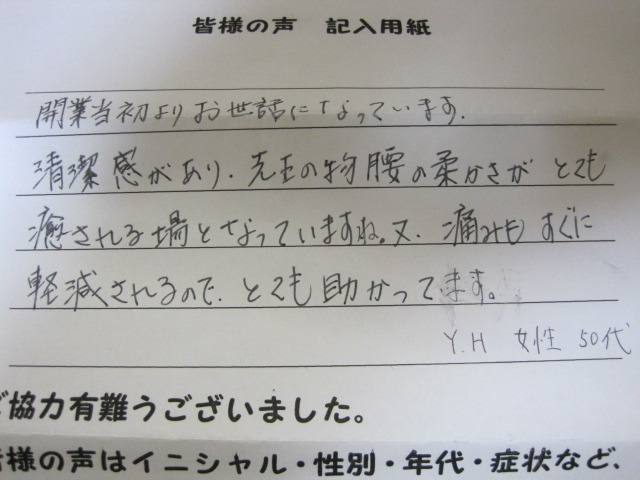 皆様の声 記入用紙
開業当初よりお世話になっています.
清潔感があり.先生の物腰の柔かさが とても
癒される場となっていますね。又、痛みも すぐに
軽減されるので.とても助かってます。
Y.H 女性 50代
ご協力有難うございました。
皆様の声はイニシャル・性別・年代・症状など、